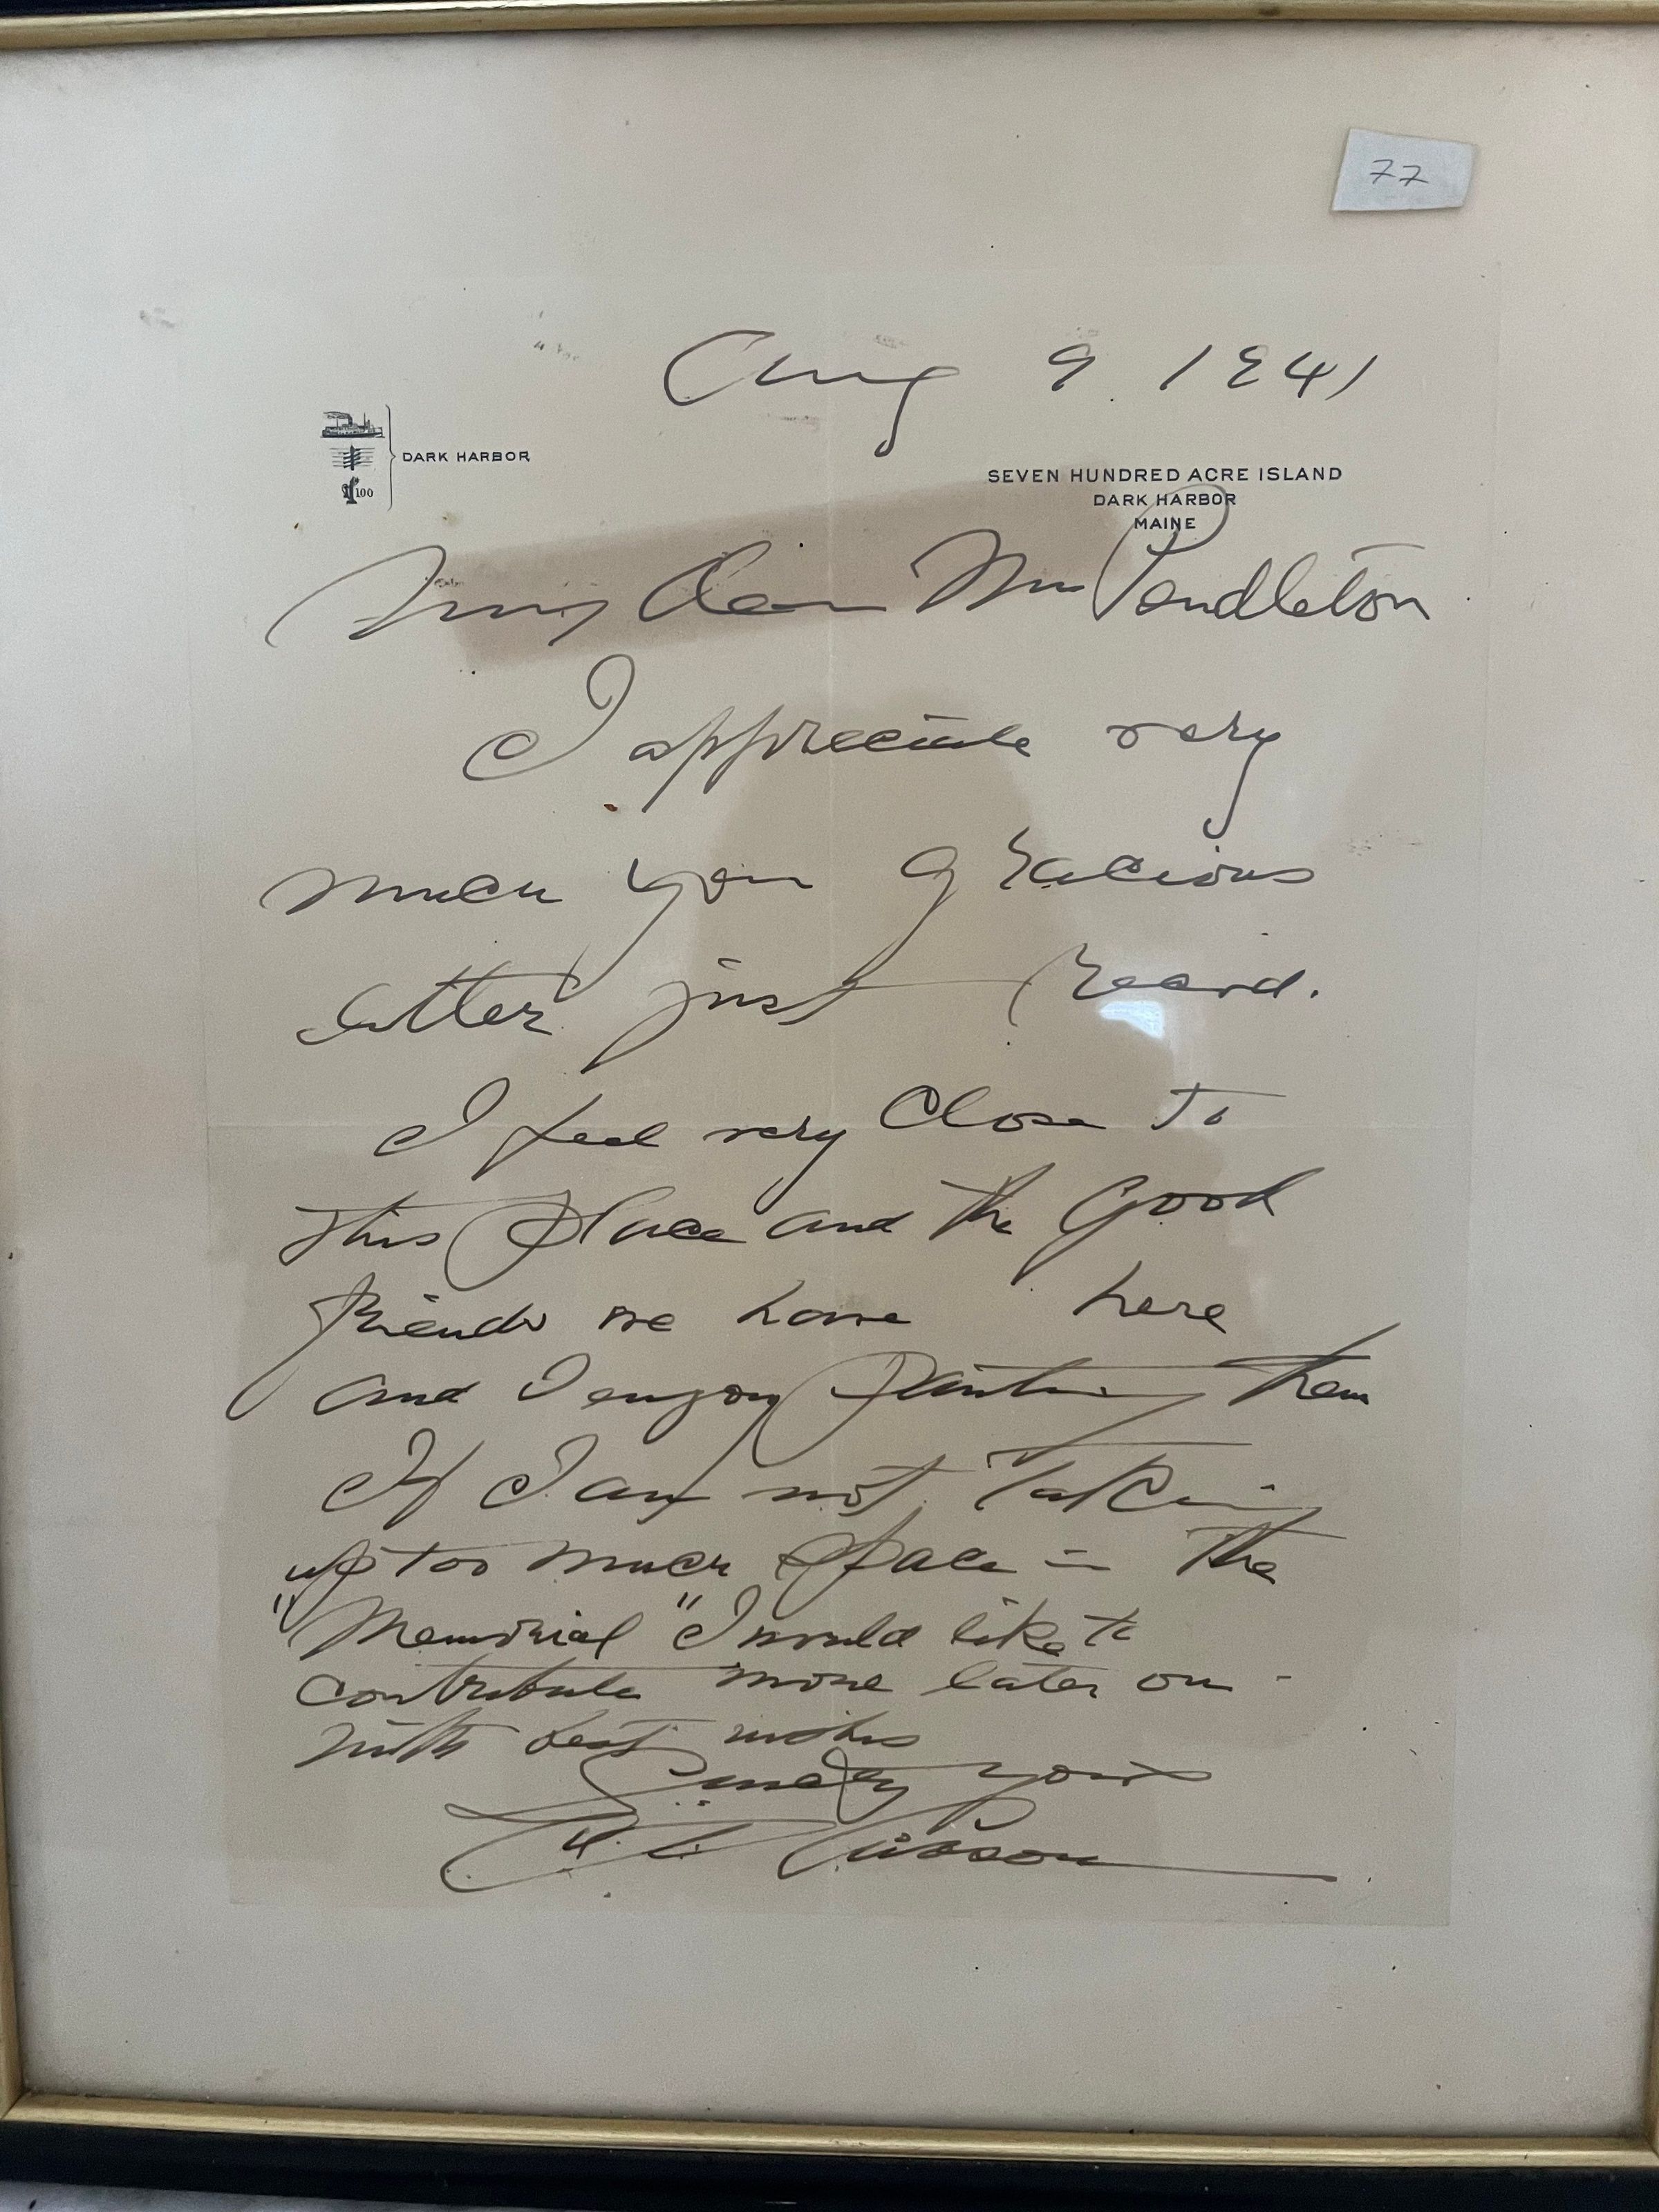 77
Aug 9. 1941
DARK HARBOR
100
SEVEN HUNDRED ACRE ISLAND
DARK HARBOR
MAINE
My dear Mrs Pendleton
I appreciate very
much your gracious
letter just
I feel very close to
this place and the good
friends we have here
and I enjoy painting them
If I am not taking
up too much space in the
"Memorial" I would like to
contribute more later on -
with best wishes
Sincerely yours
C. D. Gibson